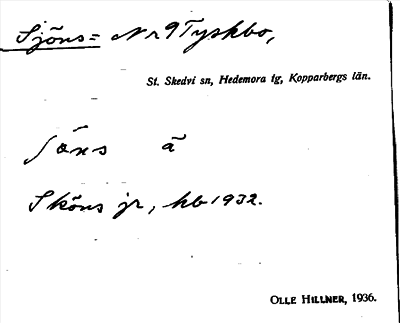 Sjöns= Nr 9 Tyskbo,
St. Skedvi sn, Hedemora tg, Kopparbergs län.
ʃöns ä
Sköns jr, hb 1932.
OLLE HILLNER, 1936.